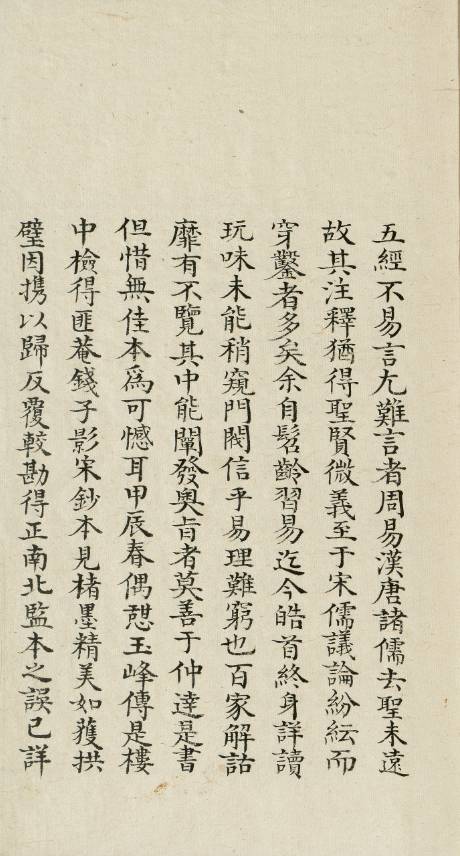 五經不易言尢難言者周易漢唐諸儒去聖未遠
故其注釋猶得聖賢微義至于宋儒議論紛紜而
穿鑿者多矣余自髫齡習易迄今皓首終身詳讀
玩味未能稍窺門閾信乎易理難窮也百家解詁
靡有不覽其中能闡發奧旨者莫善于仲達是書
但惜無佳本爲可憾耳甲辰春偶憇玉峰傳是樓
中檢得匪菴錢子影宋鈔本見楮墨精美如獲拱
璧因携以歸反覆較勘得正南北監本之誤已詳